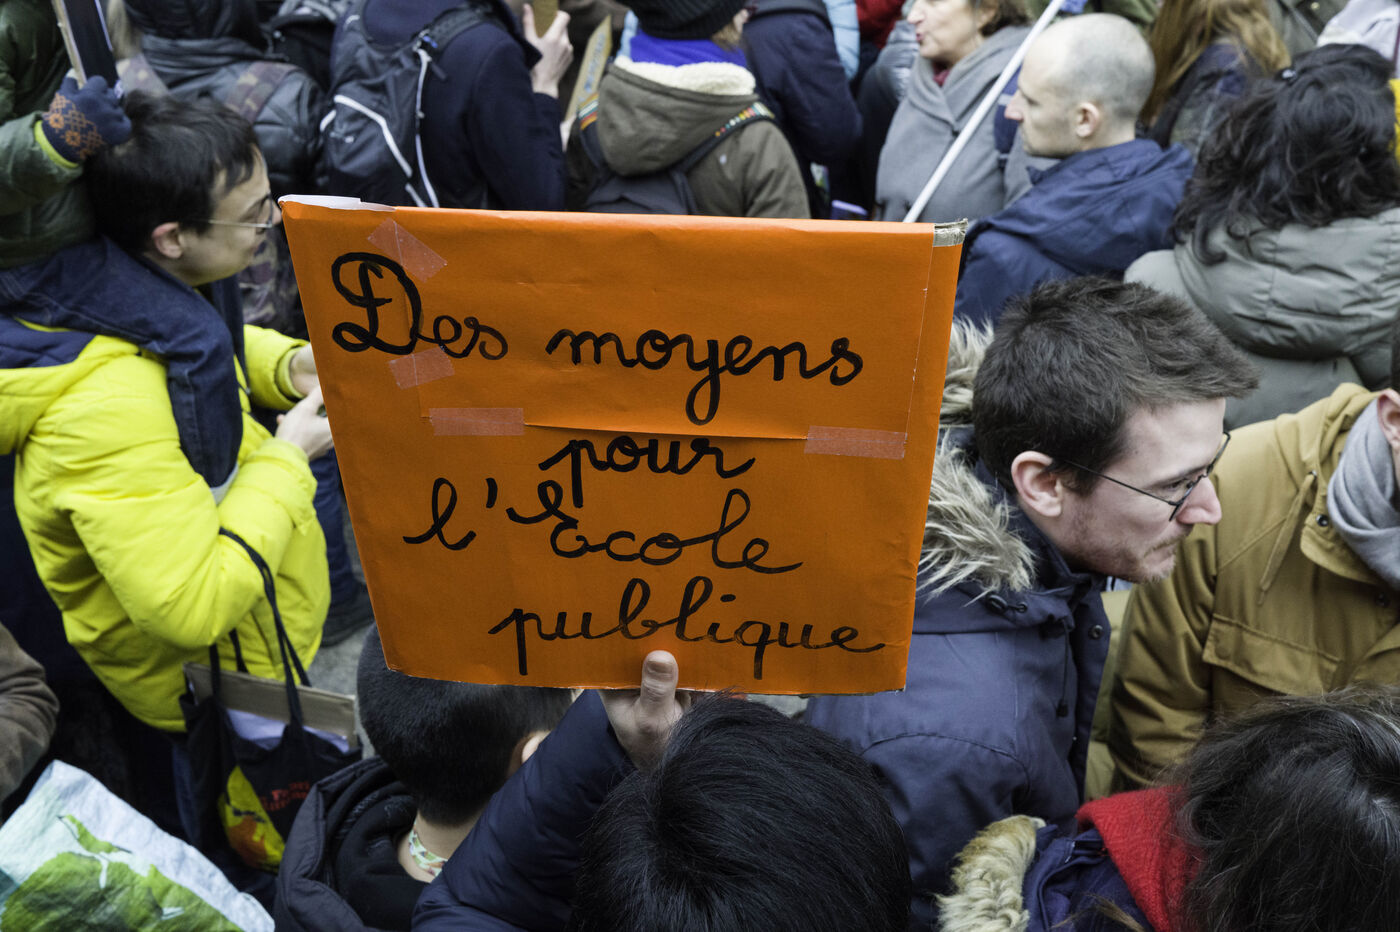 Des moyens
pour
l'École
publique